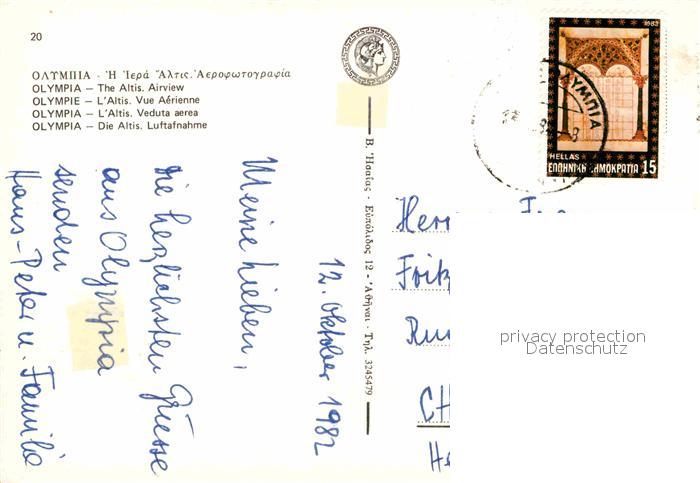 20
ΟΛΥΜΠΙΑ - Ἡ Ἱερά Ἄλτις. Ἀεροφωτογραφία
OLYMPIA — The Altis. Airview
OLYMPIE — L'Altis. Vue Aérienne
OLYMPIA — L'Altis. Veduta aerea
OLYMPIA — Die Altis. Luftafnahme
1982
ΥΜΠΙΑ
HELLAS
ΕΛΛΗΝΙΚΗ ΔΗΜΟΚΡΑΤΙΑ 15
Β. Ἡσαΐας - Εὐπόλιδος 12 - Ἀθῆναι - Τηλ. 3245479
12. Oktober 1982
Meine Lieben,
die herzlichsten Grüsse
aus Olympia
senden
Hans-Peter u. Familie
Herr
Fritz
CH
privacy protection
Datenschutz